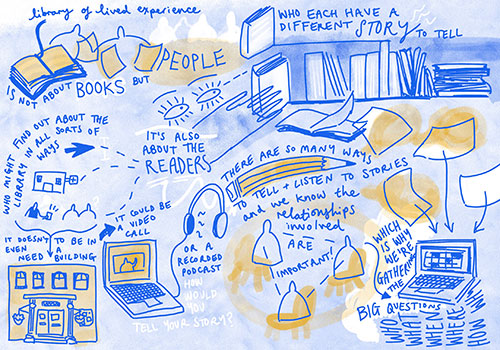 library of lived experience
IS NOT ABOUT BOOKS BUT
PEOPLE
WHO EACH HAVE A
DIFFERENT STORY TO TELL
IT'S ALSO
ABOUT THE
READERS
WHO MIGHT
FIND OUT ABOUT THE
LIBRARY IN ALL SORTS OF
WAYS
IT DOESN'T EVEN NEED TO BE IN BUILDING
IT COULD BE
A VIDEO
CALL
OR A
RECORDED
PODCAST
HOW
WOULD
YOU
TELL YOUR STORY?
THERE ARE SO MANY WAYS
TO TELL + LISTEN TO STORIES
and we know the
relationships
involved
ARE
IMPORTANT!
WHICH
IS WHY
WE'RE
GATHERING
THE
BIG QUESTIONS
WHO
WHAT
WHEN
WHERE
WHY
HOW